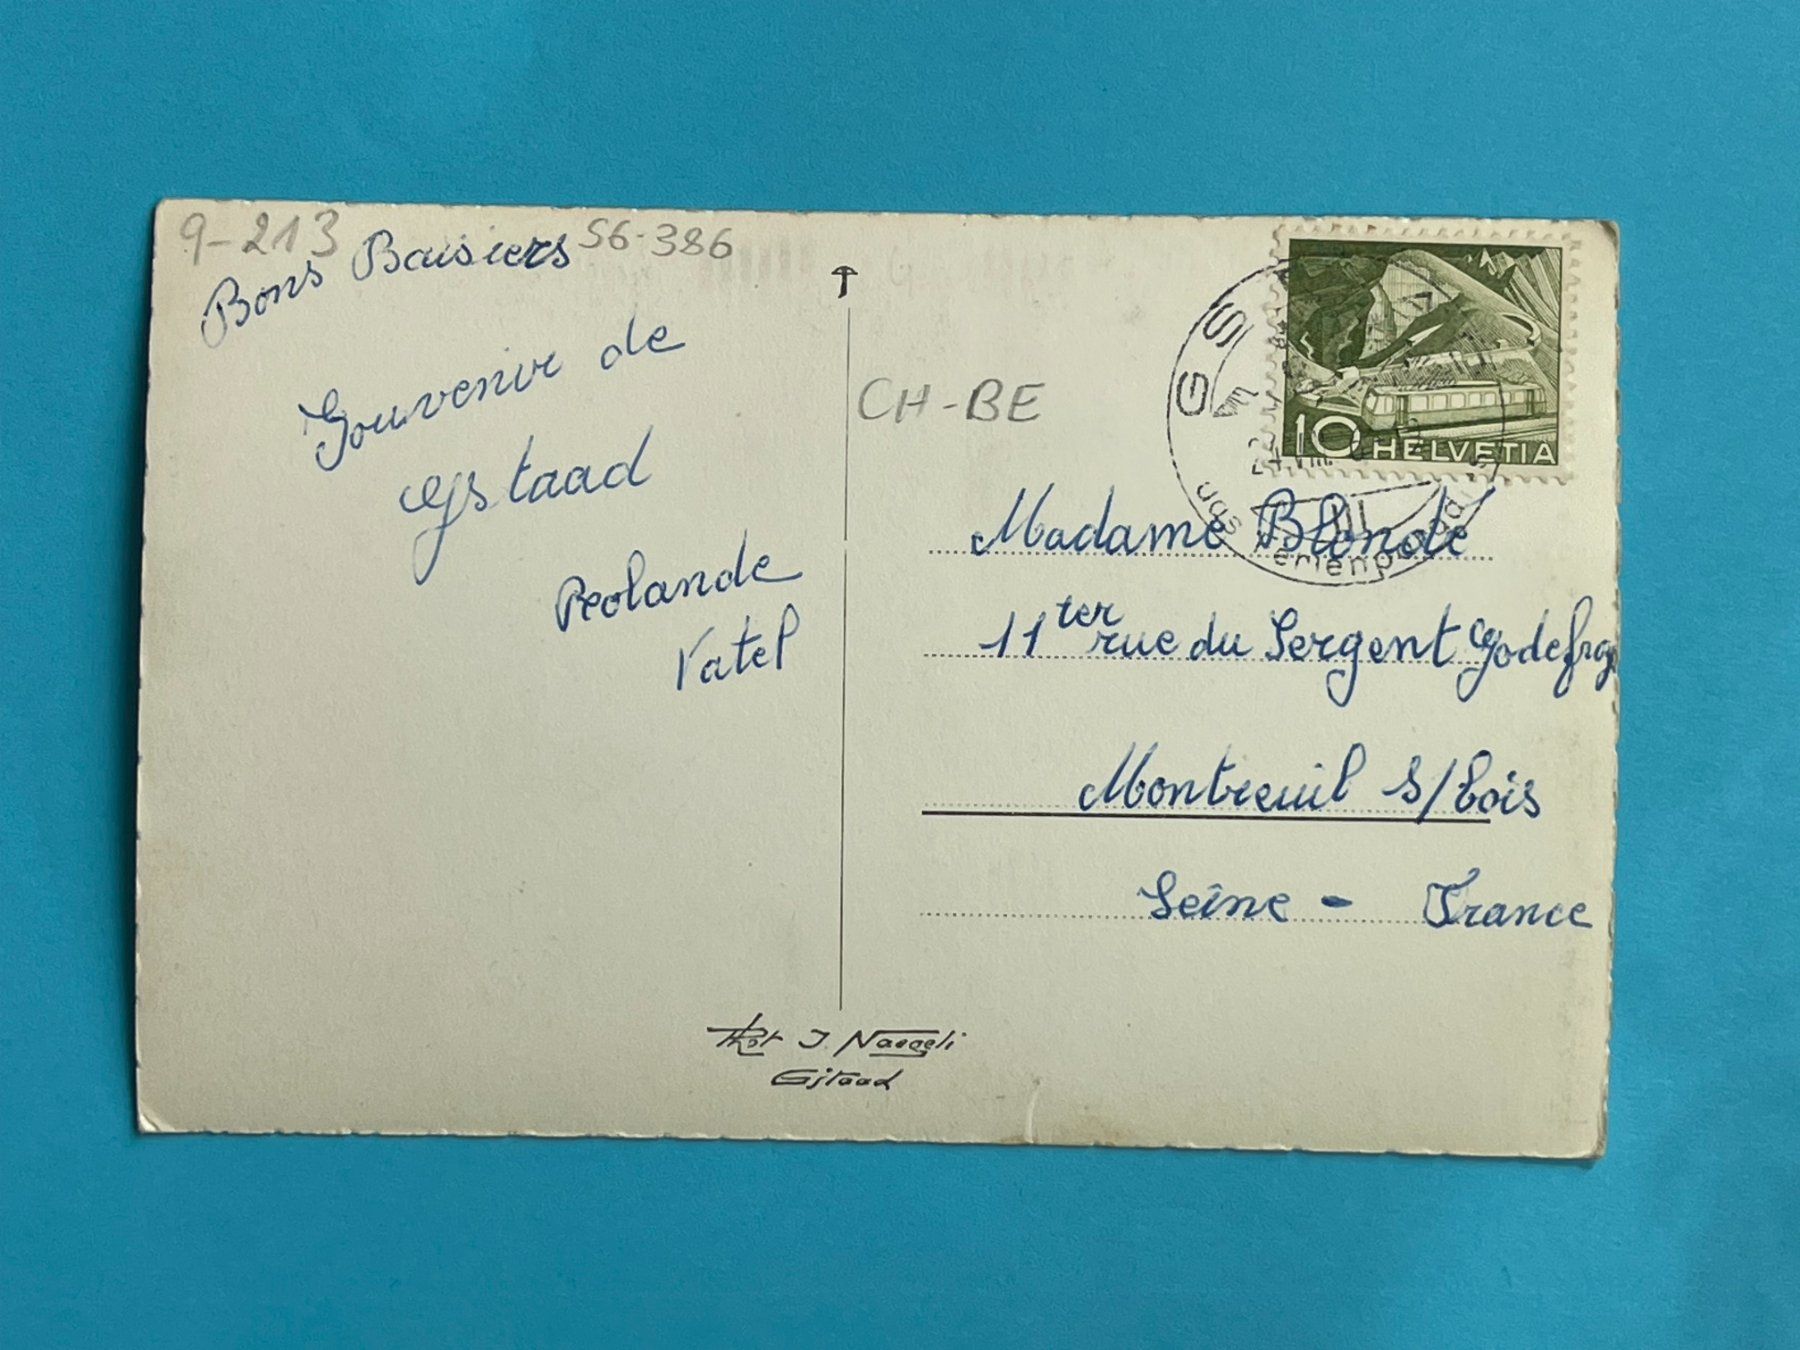 9-213
56-386
Bons Baisiers
Souvenir de
Gstaad
Rolande
Vatel
CH-BE
10 HELVETIA
das Ferienparadies
Madame Blonde
11 ter rue du Sergent Godefroy
Montreuil s/bois
Seine - France
Phot J. Naegeli
Gstaad